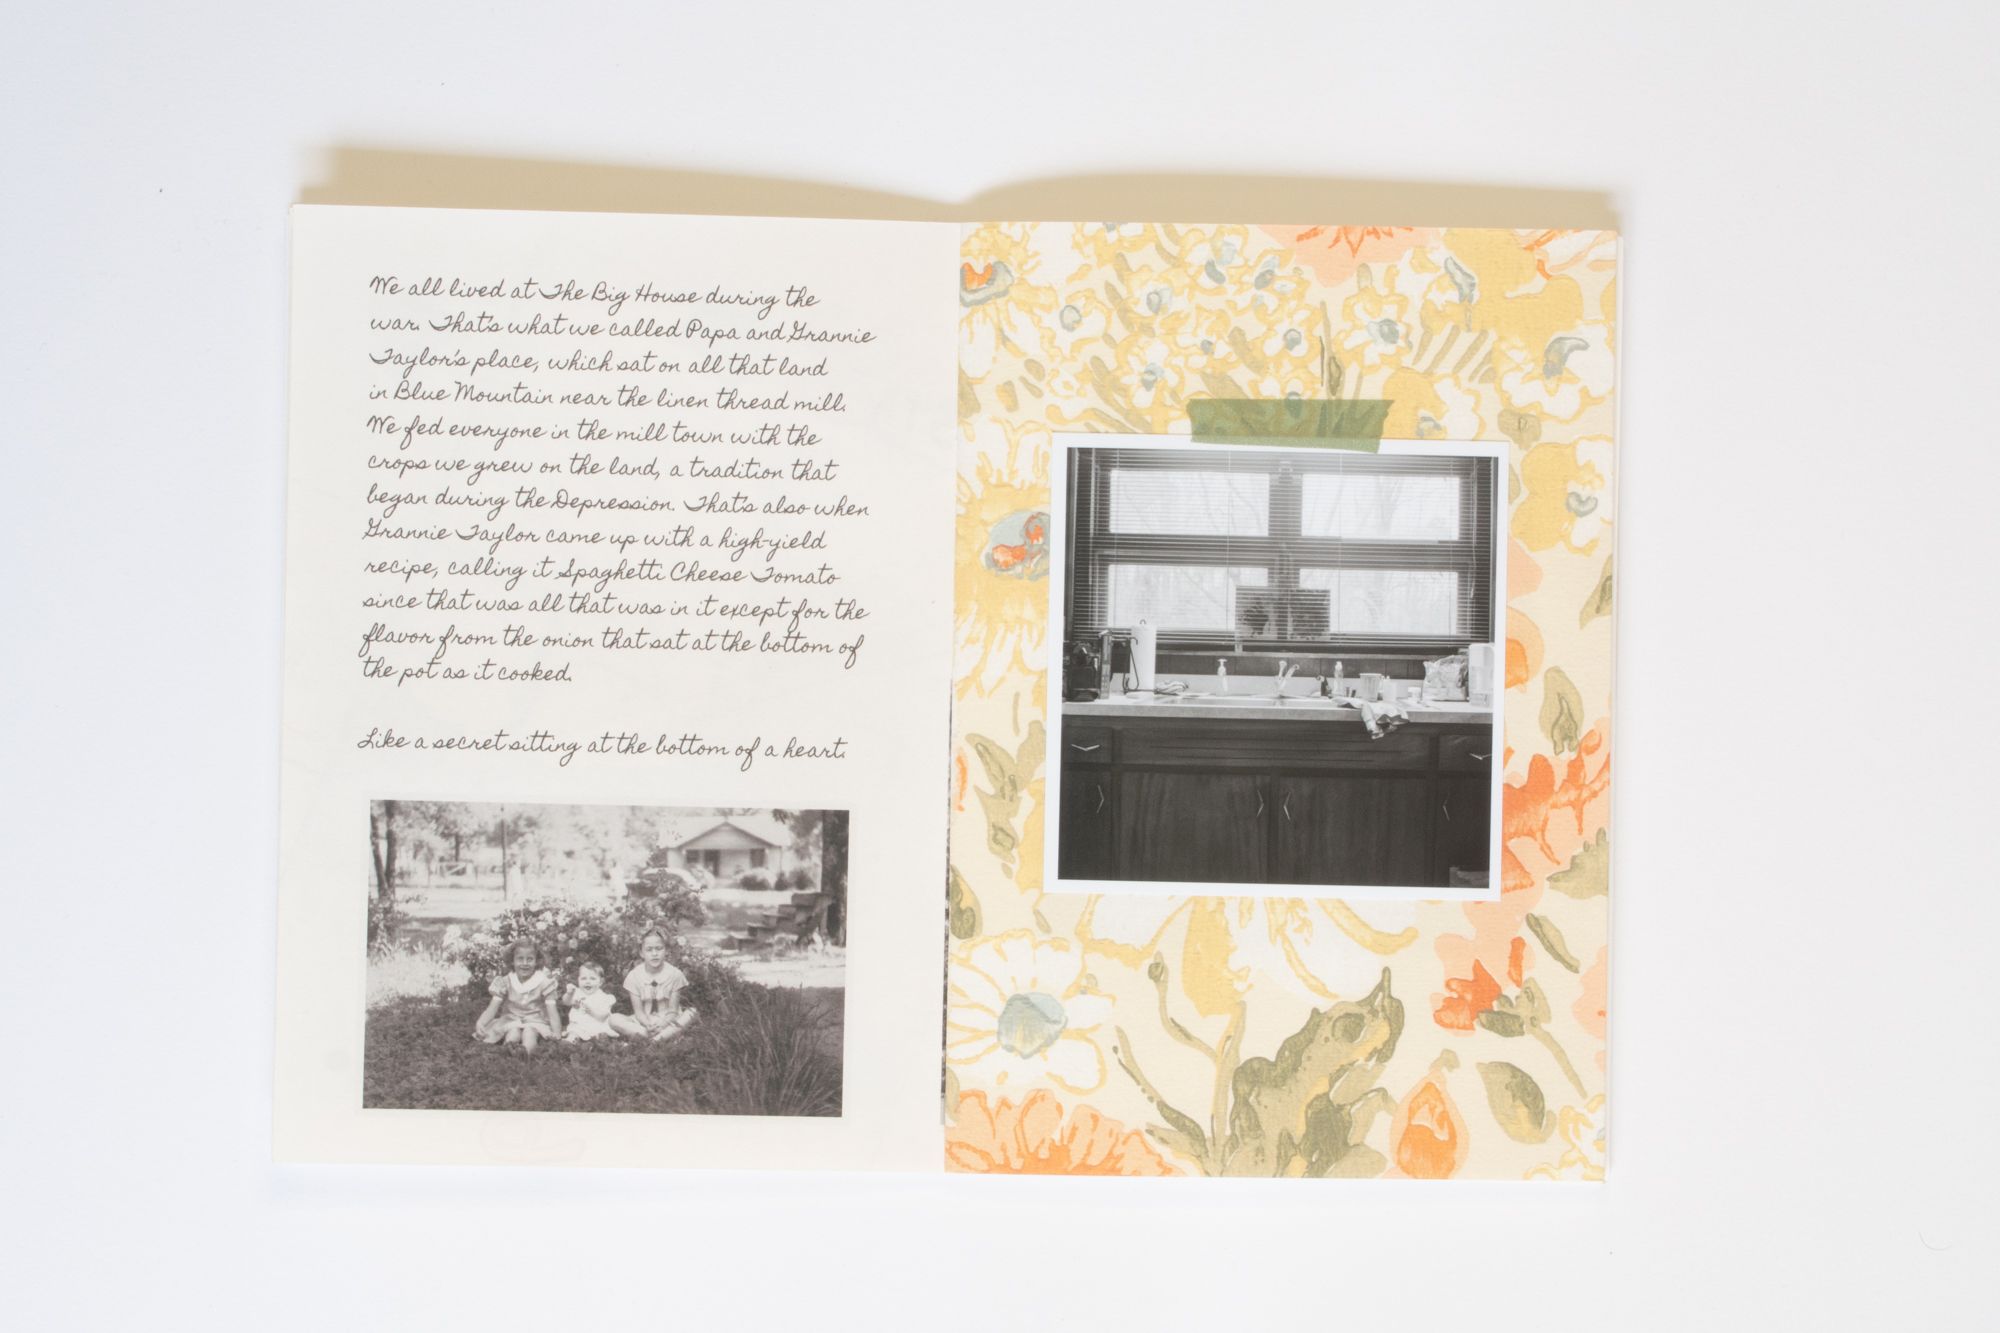 We all lived at The Big House during the
war. That's what we called Papa and Grannie
Taylor's place, which sat on all that land
in Blue Mountain near the linen thread mill.
We fed everyone in the mill town with the
crops we grew on the land, a tradition that
began during the Depression. That's also when
Grannie Taylor came up with a high-yield
recipe, calling it Spaghetti Cheese Tomato
since that was all that was in it except for the
flavor from the onion that sat at the bottom of
the pot as it cooked.
Like a secret sitting at the bottom of a heart.